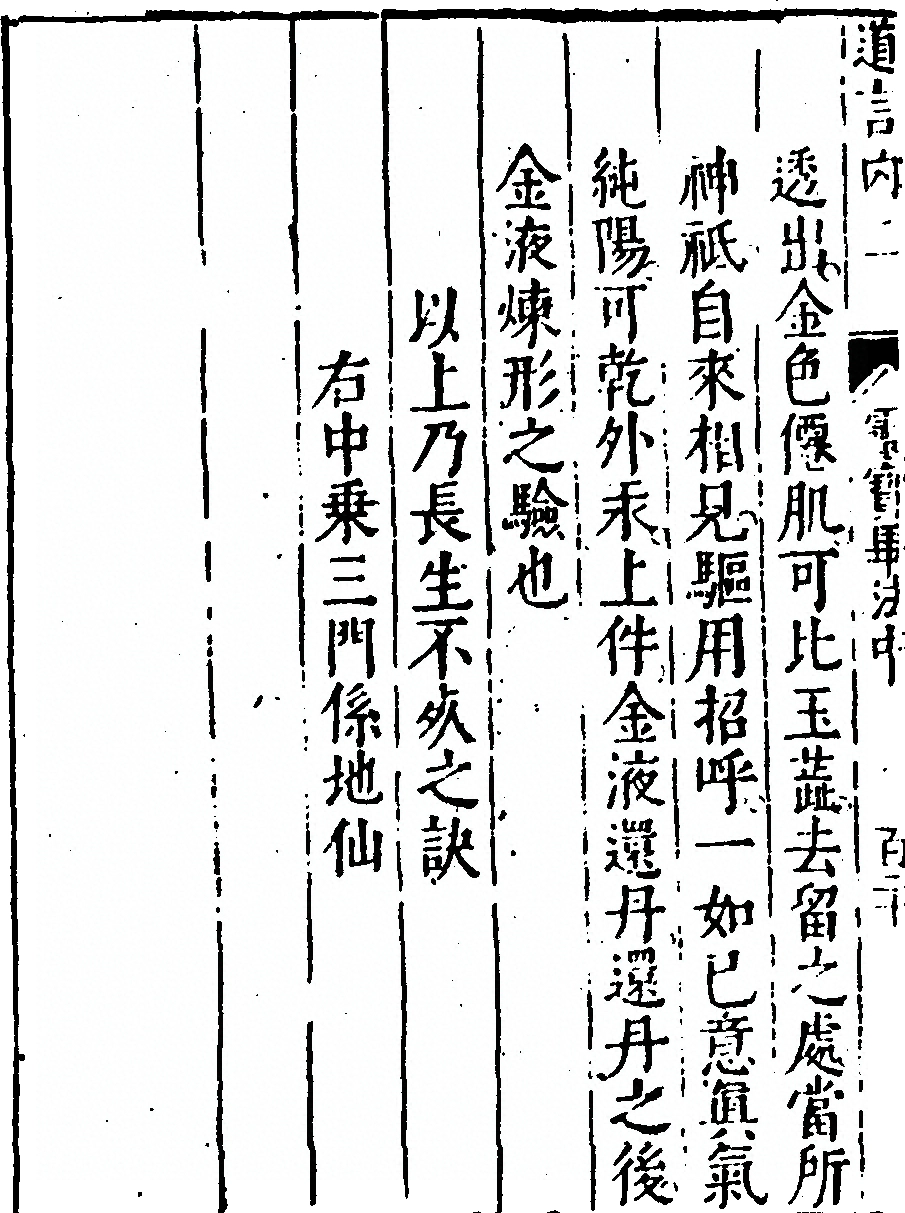 道言內二 靈寶畢法中
透出金色僊肌可比玉蘂去留之處當所
神祇自來相見驅用招呼一如已意眞氣
純陽可乾外汞上件金液還丹還丹之後
金液煉形之驗也
以上乃長生不㱙之訣
右中乗三門係地仙